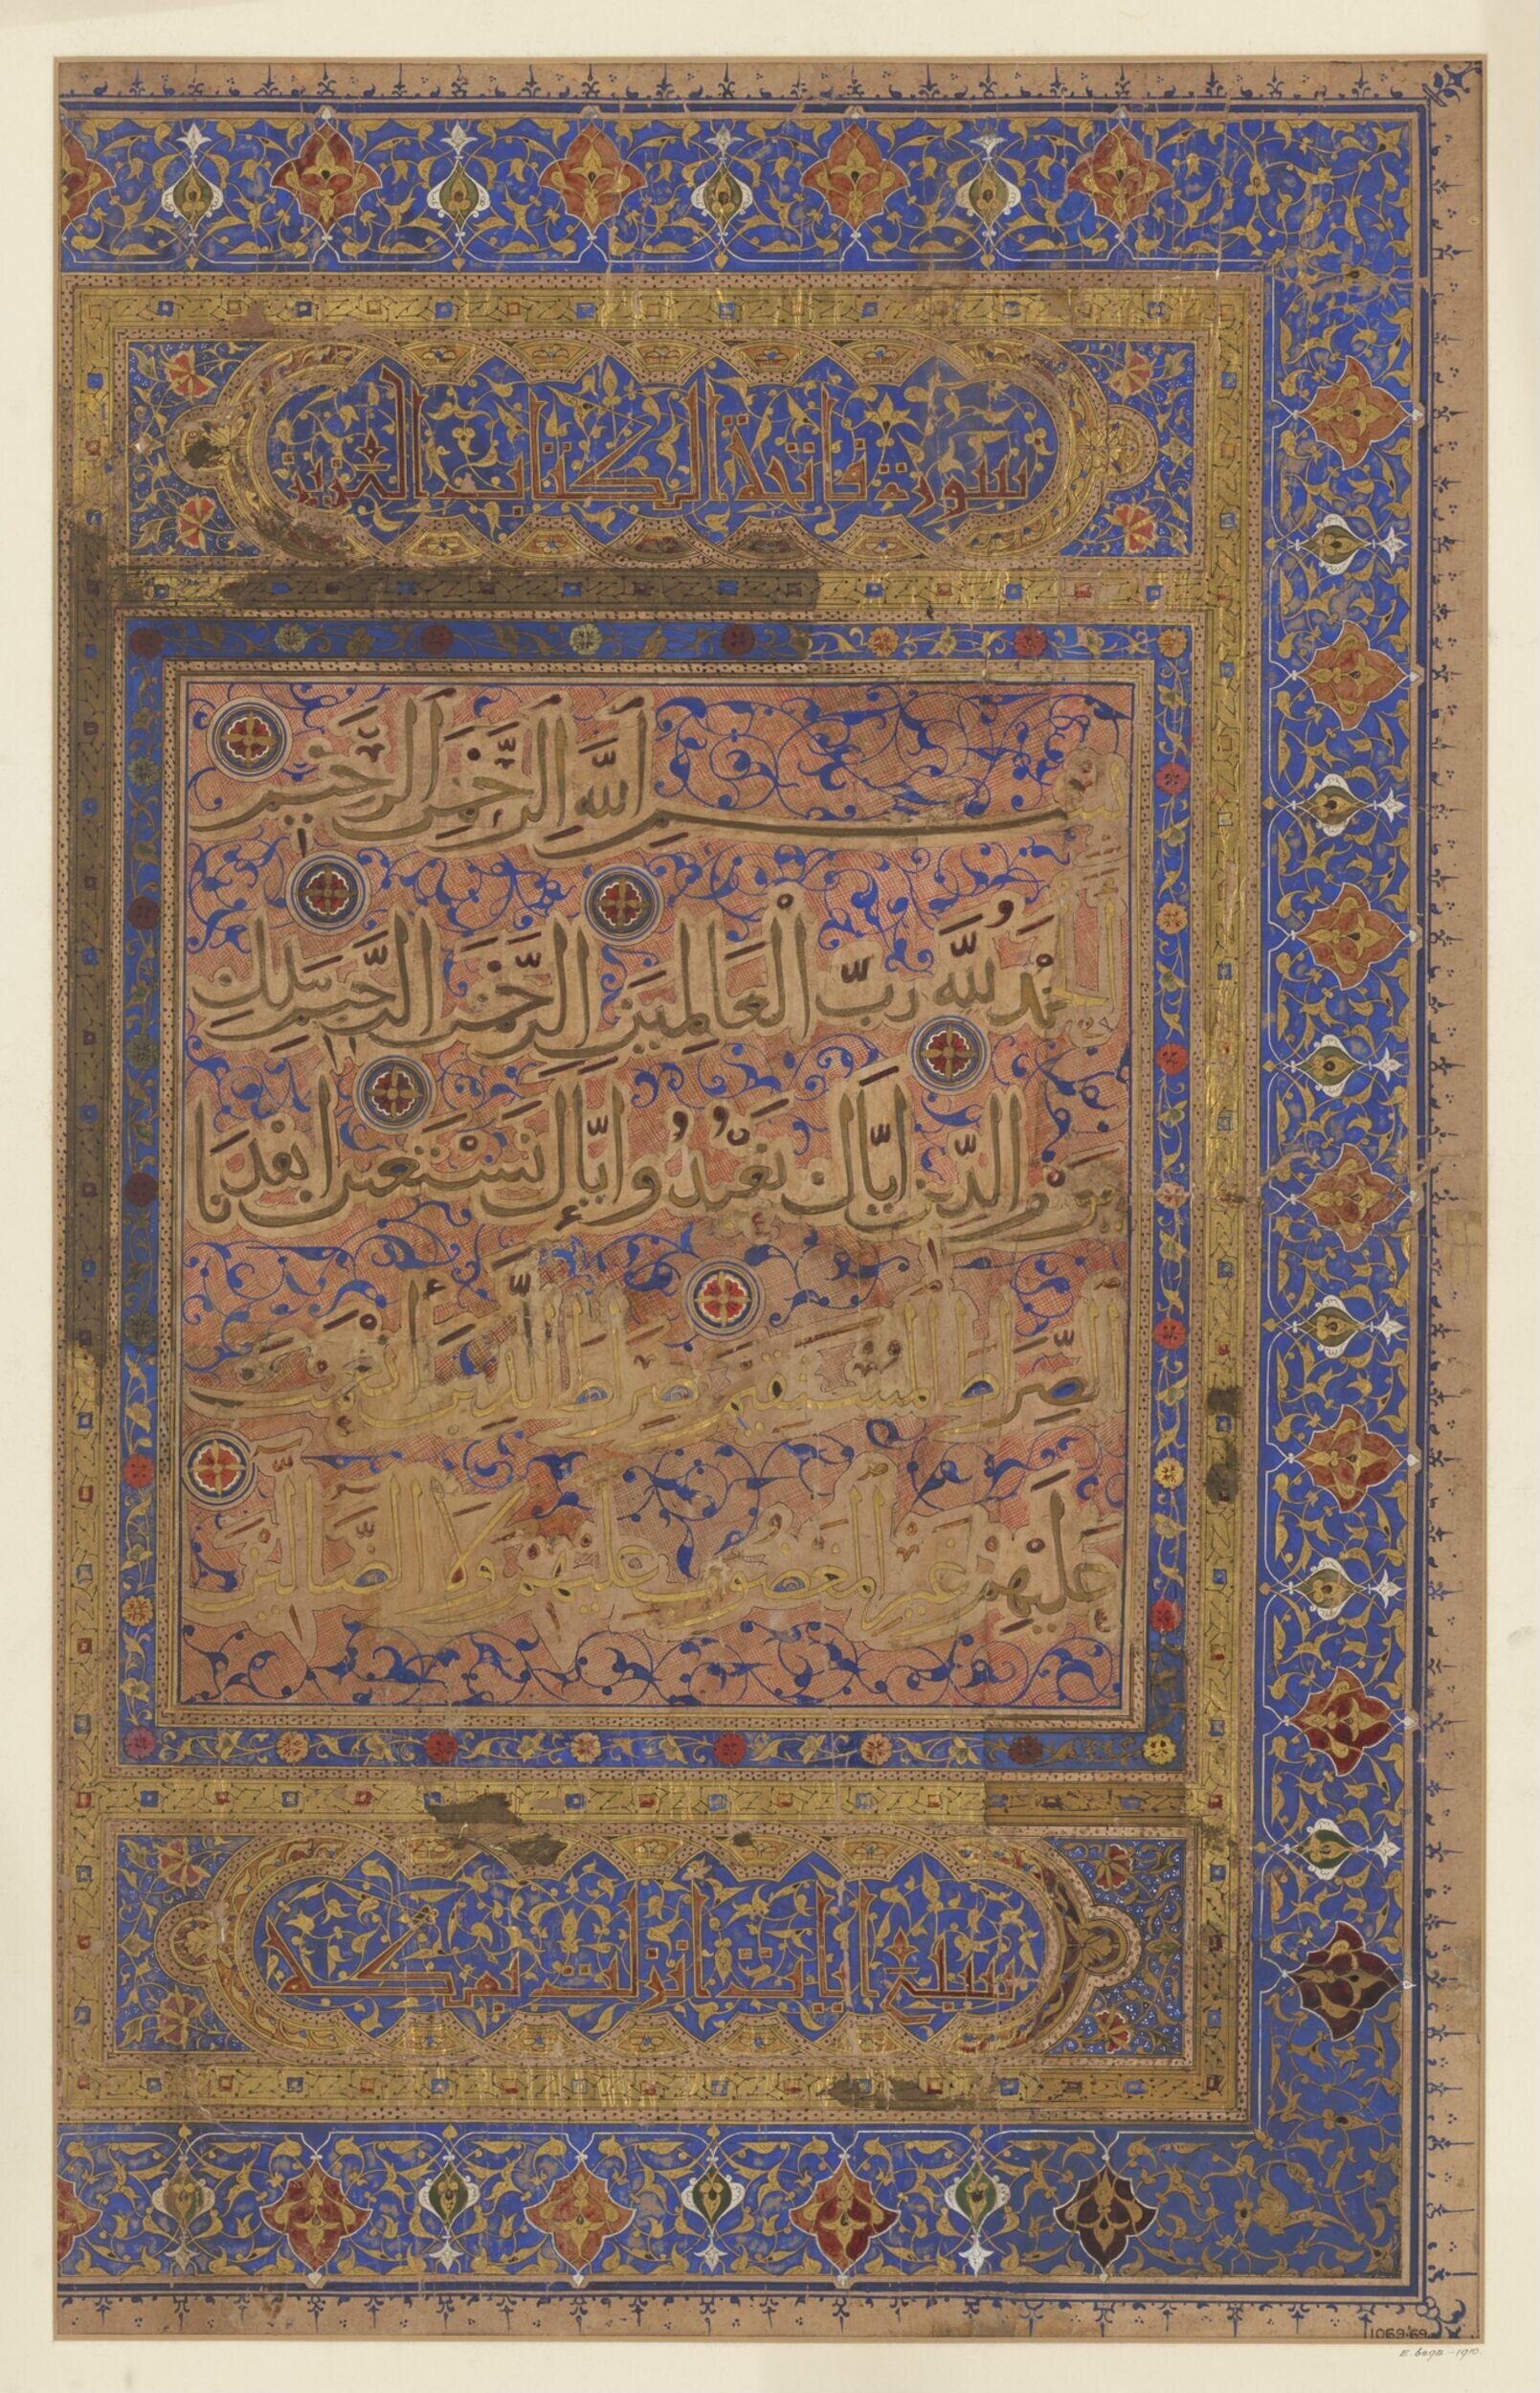 سورة فاتحة الكتاب العزيز
بِسْمِ اللَّهِ الرَّحْمَنِ الرَّحِيمِ
الْحَمْدُ لِلَّهِ رَبِّ الْعَالَمِينَ الرَّحْمَنِ الرَّحِيمِ مَلِكِ
يَوْمِ الدِّينِ إِيَّاكَ نَعْبُدُ وَإِيَّاكَ نَسْتَعِينُ اهْدِنَا
الصِّرَاطَ الْمُسْتَقِيمَ صِرَاطَ الَّذِينَ أَنْعَمْتَ
عَلَيْهِمْ غَيْرِ الْمَغْضُوبِ عَلَيْهِمْ وَلَا الضَّالِّينَ
سبع ايات انزلت بمكة
1069.'69.